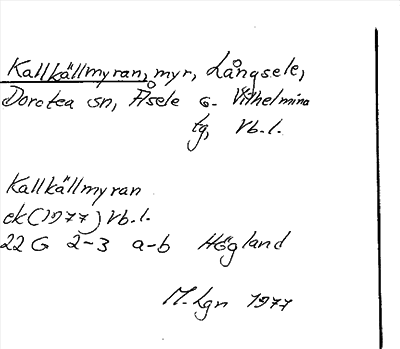 Kallkällmyran, myr, Långsele,
Dorotea sn, Åsele o. Vilhelmina
tg, Vb.l.
Kallkällmyran
ek (1977) Vb.l.
22 G 2-3 a-b Högland
M. Lgn 1977